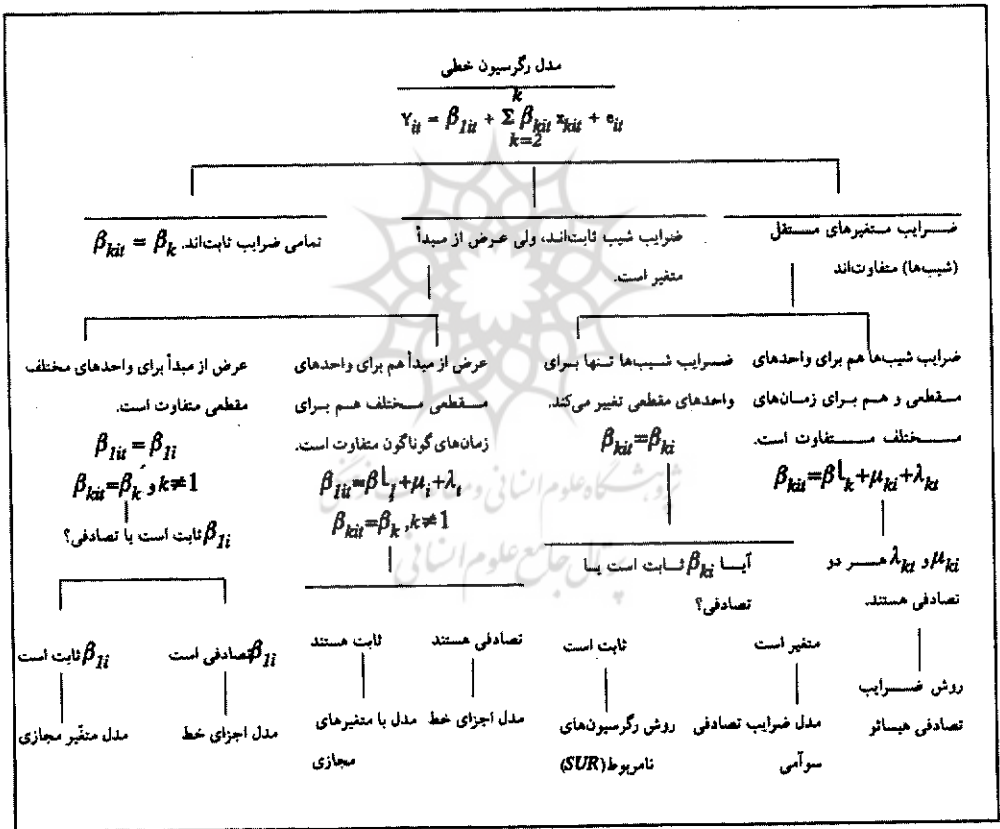 مدل رگرسیون خطی
Y_{it} = β_{1it} + Σ_{k=2}^{k} β_{kit} x_{kit} + e_{it}
ضرایب متغیرهای مستقل
(شیب‌ها) متفاوت‌اند
ضرایب شیب ثابت‌اند، ولی عرض از مبدأ
متغیر است.
تمامی ضرایب ثابت‌اند. β_{kit} = β_k
ضرایب شیب‌ها هم برای واحدهای
مقطعی و هم برای زمان‌های
مختلف متفاوت است.
β_{kit}=β_k+μ_{ki}+λ_{kt}
μ_{ki} و λ_{kt} هر دو
تصادفی هستند.
روش ضرایب
تصادفی هیسائو
ضرایب شیب‌ها تنها برای
واحدهای مقطعی تغییر می‌کند.
β_{kit}=β_{ki}
آیا β_{ki} ثابت است یا
تصادفی؟
متغیر است
مدل ضرایب تصادفی
سوآمی
ثابت است
روش رگرسیون‌های
نامربوط (SUR)
عرض از مبدأ هم برای واحدهای
مقطعی مختلف هم برای
زمان‌های گوناگون متفاوت است.
β_{1it}=β_1+μ_i+λ_t
β_{kit}=β_k ,k≠1
تصادفی هستند
مدل اجزای خط
ثابت هستند
مدل با متغیرهای
مجازی
عرض از مبدأ برای واحدهای مختلف
مقطعی متفاوت است.
β_{1it}=β_{1i}
β_{kit}=β_k و k≠1
β_{1i} ثابت است یا تصادفی؟
β_{1i} تصادفی است
مدل اجزای خط
β_{1i} ثابت است
مدل متغّیر مجازی
پژوهشگاه علوم انسانی و مطالعات فرهنگی
پرتال جامع علوم انسانی